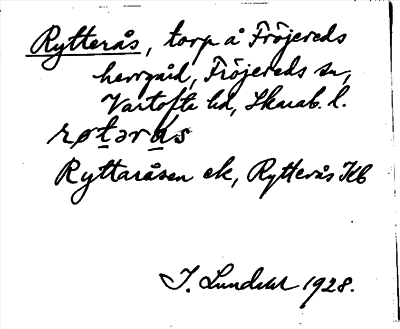 Rytterås, torp å Fröjereds
herrgård, Fröjereds sn,
Vartofta hd, Skarab. l.
røtərås
Ryttaråsen ek, Rytterås Kb
J. Lundahl 1928.